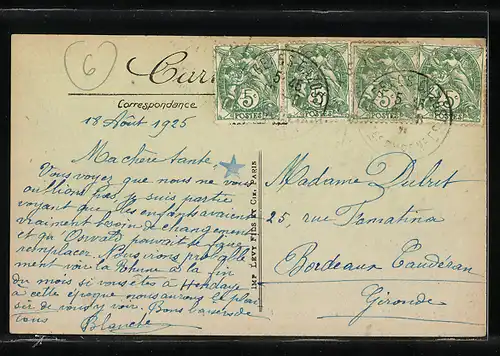 6
Car
5 POSTES 5 POSTES 5 POSTES 5 POSTES
Correspondance
18 Août 1925
Ma chère tante,
Vous voyez que nous ne vous
oublions pas, je suis partie
voyant que les enfants avaient
vraiment besoin de changement
et qu'Oswald pouvait se faire
remplacer. Nous irons probable
ment voir la Rhune à la fin
du mois si vous êtes à Hendaye
à cette époque nous aurons le plai
sir de vous y voir. Bons baisers de
tous
Blanche
IMP. LÉVY FILS ET Cie, PARIS
Madame Dubrit
25, rue
Bordeaux Caudéran
Gironde